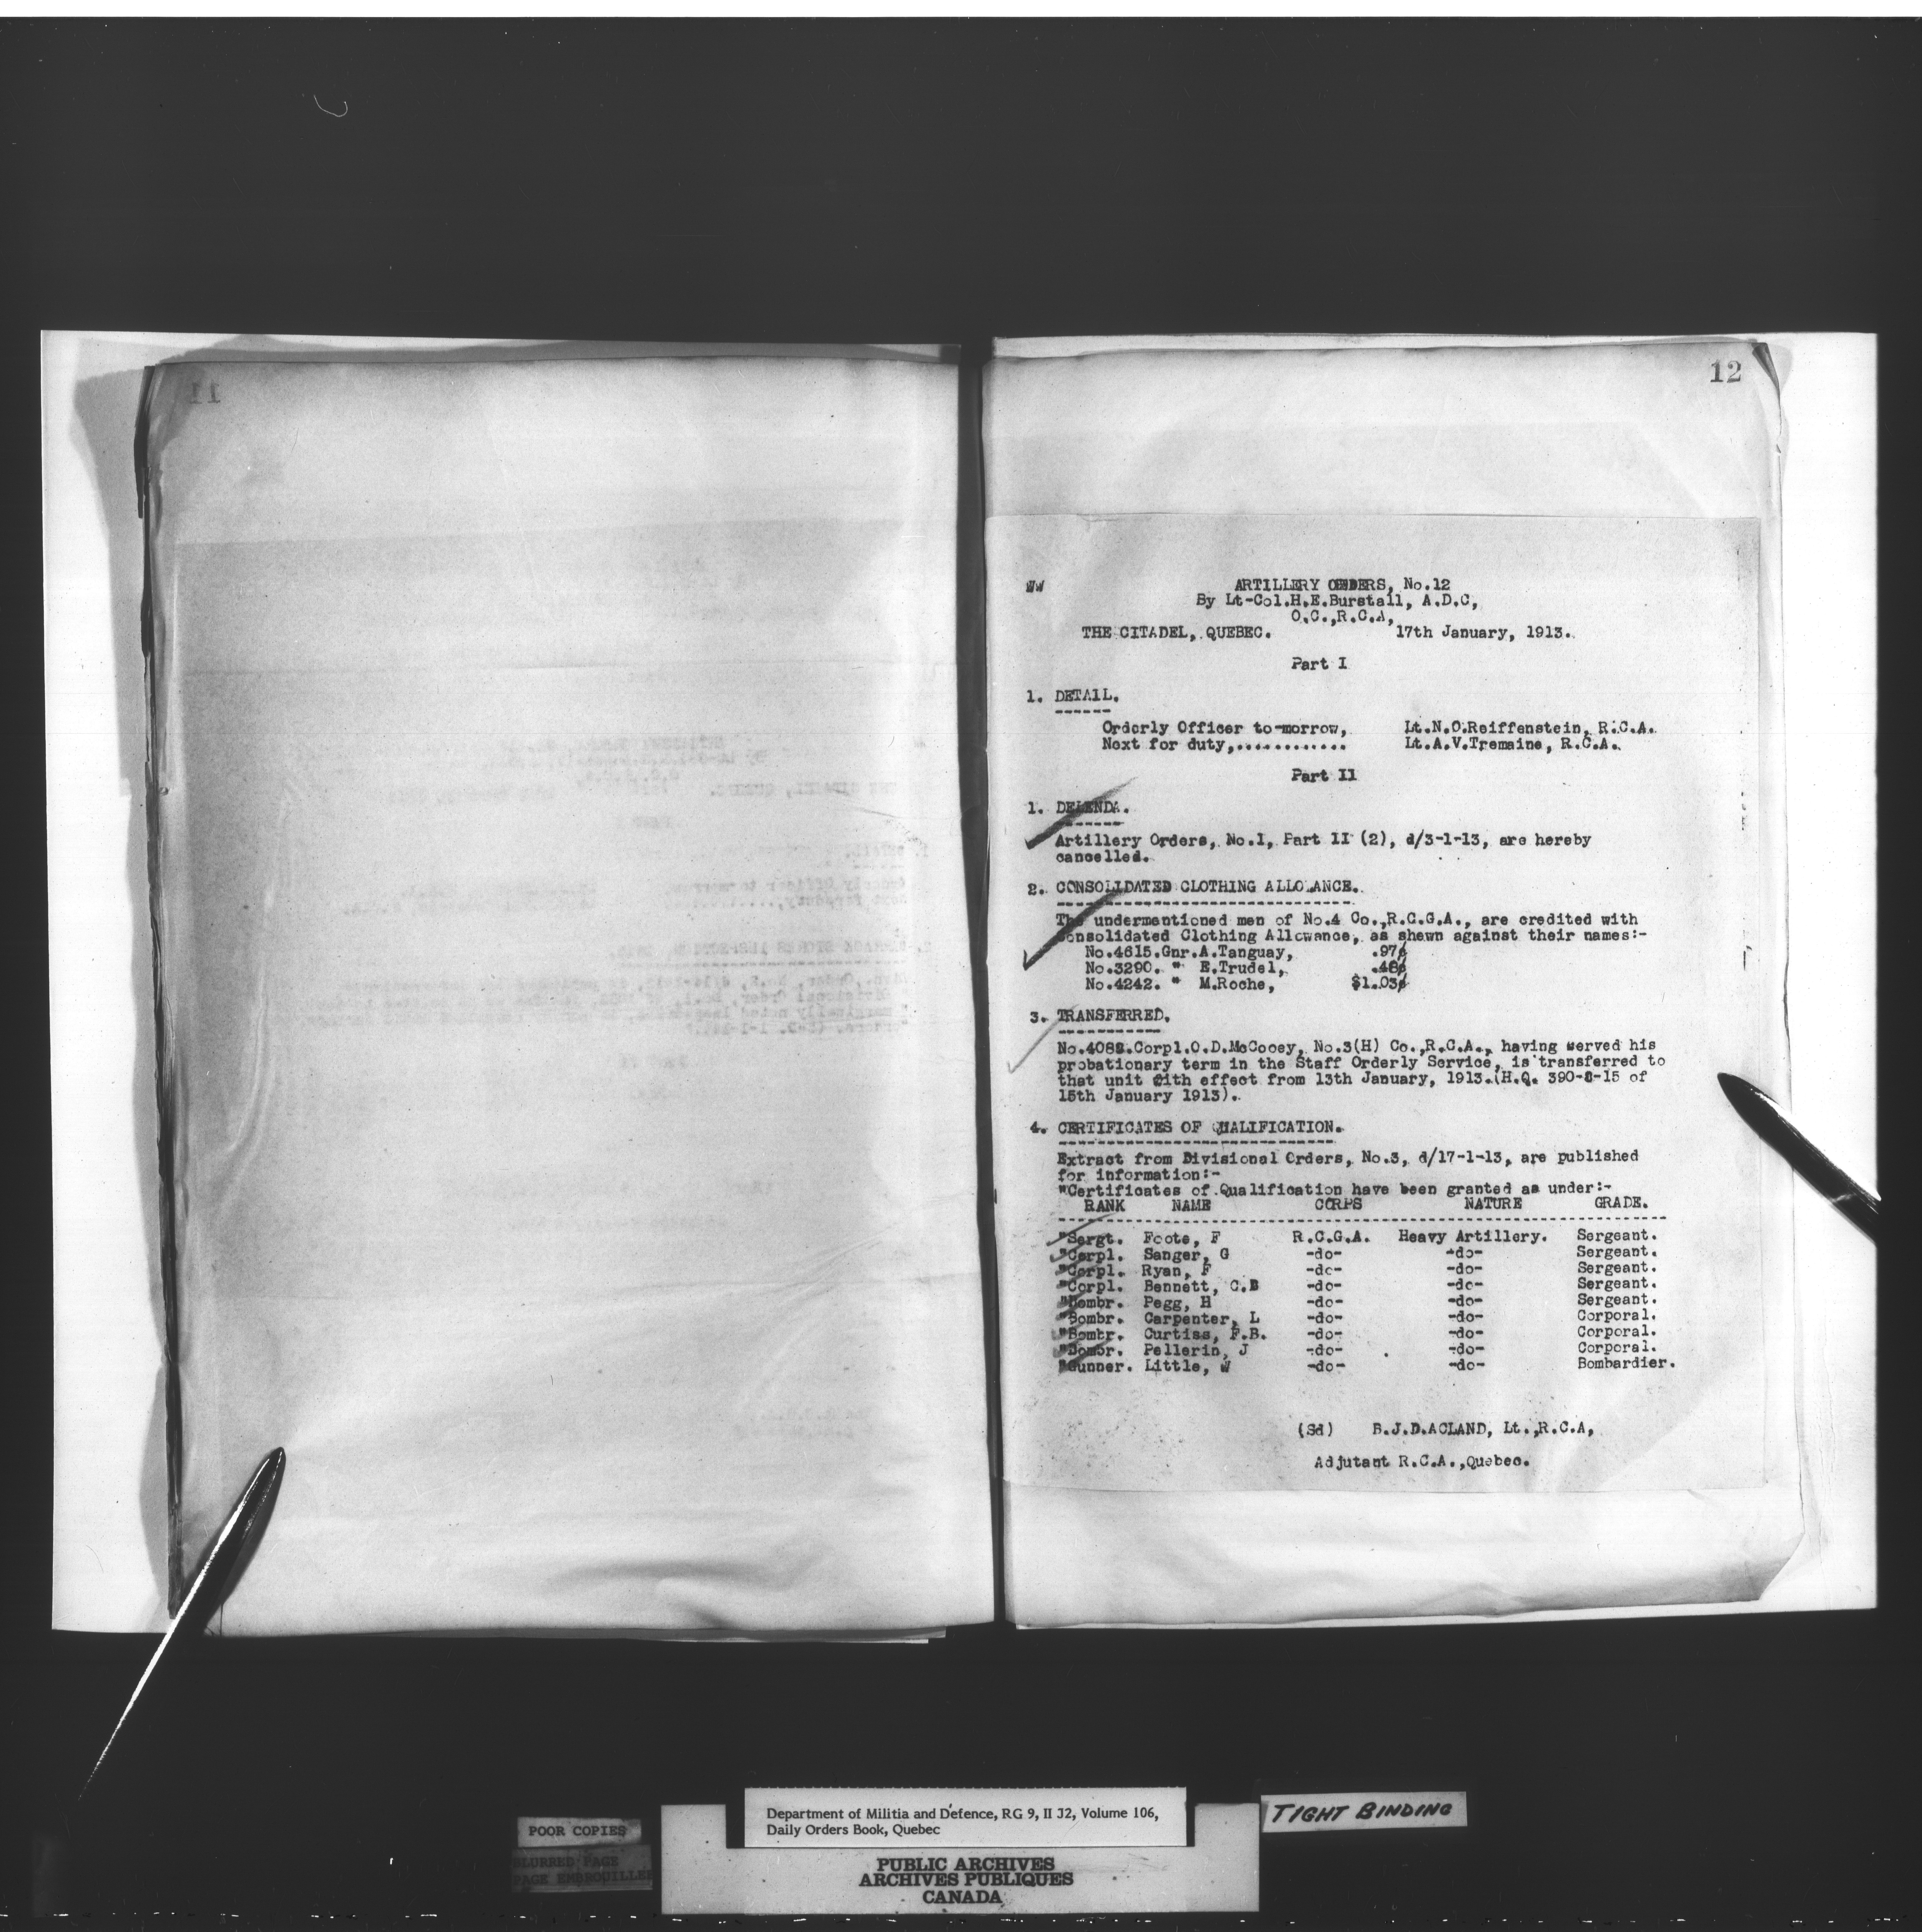 11
12
WW
ARTILLERY ORDERS, No.12
By Lt-Col.H.E.Burstall, A.D.C,
O.C.,R.C.A,
THE CITADEL, QUEBEC. 17th January, 1913.
Part I
1. DETAIL.
Orderly Officer to-morrow, Lt.N.O.Reiffenstein, R.C.A.
Next for duty,............ Lt.A.V.Tremaine, R.C.A.
Part II
1. DELENDA.
Artillery Orders, No.1, Part II (2), d/3-1-13, are hereby
cancelled.
2. CONSOLIDATED CLOTHING ALLOWANCE.
The undermentioned men of No.4 Co.,R.C.G.A., are credited with
Consolidated Clothing Allowance, as shewn against their names:-
No.4615.Gnr.A.Tanguay, .97¢
No.3290. " E.Trudel, .48¢
No.4242. " M.Roche, $1.03¢
3. TRANSFERRED.
Corpl.O.D.McCooey, No.3(H) Co.,R.C.A., having served his
probationary term in the Staff Orderly Service, is transferred to
that unit with effect from 13th January, 1913.(H.Q. 390-8-15 of
15th January 1913).
4. CERTIFICATES OF QUALIFICATION.
Extract from Divisional Orders, No.3, d/17-1-13, are published
for information:-
"Certificates of Qualification have been granted as under:-
RANK NAME CORPS NATURE GRADE.
"Sergt. Foote, F R.C.G.A. Heavy Artillery. Sergeant.
"Corpl. Sanger, G -do- -do- Sergeant.
"Corpl. Ryan, F -do- -do- Sergeant.
"Corpl. Bennett, C.B -do- -do- Sergeant.
"Bombr. Pegg, H -do- -do- Sergeant.
"Bombr. Carpenter, L -do- -do- Corporal.
"Bombr. Curtiss, F.B. -do- -do- Corporal.
"Bombr. Pellerin, J -do- -do- Corporal.
"Gunner. Little, W -do- -do- Bombardier.
(Sd) B.J.D.ACLAND, Lt.,R.C.A,
Adjutant R.C.A.,Quebec.
Department of Militia and Defence, RG 9, II J2, Volume 106,
Daily Orders Book, Quebec
POOR COPIES
BLURRED PAGE
PAGE EMBROUILLEE
TIGHT BINDING
PUBLIC ARCHIVES
ARCHIVES PUBLIQUES
CANADA